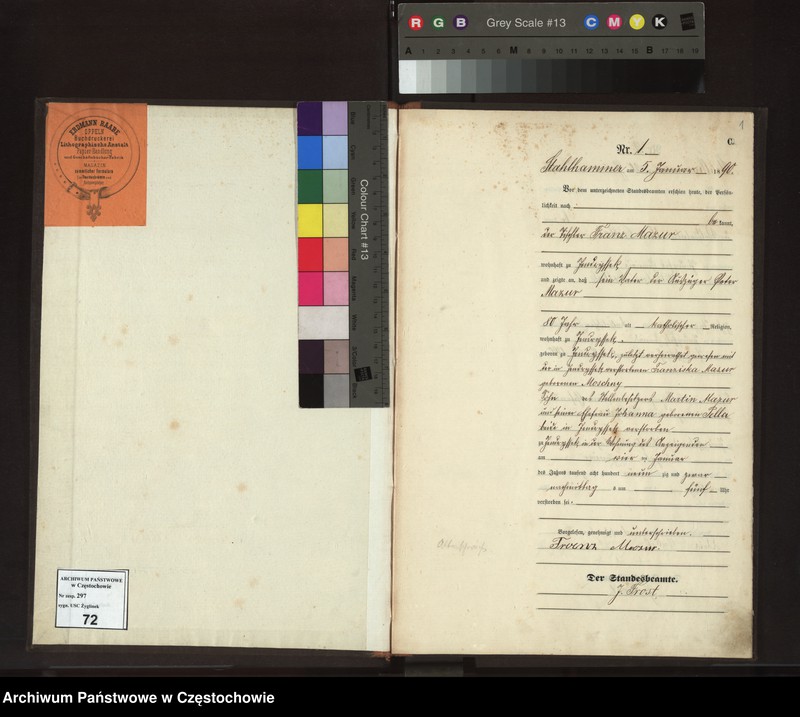 R G B Grey Scale #13 C M Y K
A 1 2 3 4 5 6 M 8 9 10 11 12 13 14 15 B 17 18 19
ERDMANN RAABE
OPPELN
Buchdruckerei
Lithographische Anstalt
Papier-Handlung
MAGAZIN
Colour Chart #13
Blue
Cyan
Green
Yellow
Red
Magenta
White
3/Color
Black
ARCHIWUM PAŃSTWOWE
w Częstochowie
Nr zesp. 297
sygn. USC Żyglinek
72
1
C.
Nr. 1
Stahlhammer am 5. Januar 1890.
Vor dem unterzeichneten Standesbeamten erschien heute, der Persön-
lichkeit nach
be kannt,
der Tischler Franz Mazur
wohnhaft zu Jendryssek
und zeigte an, daß sein Vater der Peter
Mazur
80 Jahr alt katholischer Religion,
wohnhaft zu Jendryssek,
geboren zu Jendryssek, zuletzt verheirathet gewesen mit
der in Jendryssek verstorbenen Franziska Mazur
geborenen Moschny
Sohn des Stellenbesitzers Martin Mazur
und seiner Ehefrau Johanna geborenen Pella
beide in Jendryssek verstorben
zu Jendryssek in der Wohnung des Anzeigenden
am vier en Januar
des Jahres tausend acht hundert neun zig und zwar
nachmittag s um fünf Uhr
verstorben sei.
Vorgelesen, genehmigt und unterschrieben.
Franz Mazur.
Der Standesbeamte.
J. Frost
Archiwum Państwowe w Częstochowie